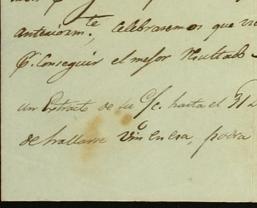 anteriorm.te Celebraremos que
p.a Conseguir el mejor Resultado
un Extracto de su C/C. hasta el 31
de hallarse Vm en esa, podra